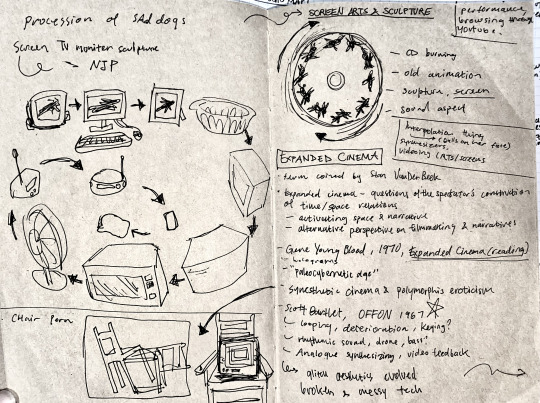 Procession of SAd dogs
Screen TV moniter sculpture
NJP
CHair Porn
SCREEN ARTS & SCULPTURE
performance,
browsing through
Youtube.
- CD burning
- old animation
sculpture, screen
- sound aspect
Interpolation thing
(CRTs on her face)
synthesizers,
videoing CRTS/screens
EXPANDED CINEMA
- term coined by Stan VanDerBeek
- Expanded cinema - questions of the spectator's construction
of time/space relations
- activating space & narrative
- alternative perspective on filmmaking & narratives
- Gene Young Blood, 1970, Expanded Cinema (reading)
- holograms
- "paleocybernetic age"
- Synesthetic cinema & polymorphic eroticism
- Scott Bartlet, OFFON 1967
looping, deterioration, keying?
rhythmic sound, drone, bass
Analogue synthesizing, video feedback
glitch aesthetics evolved
broken & messy tech